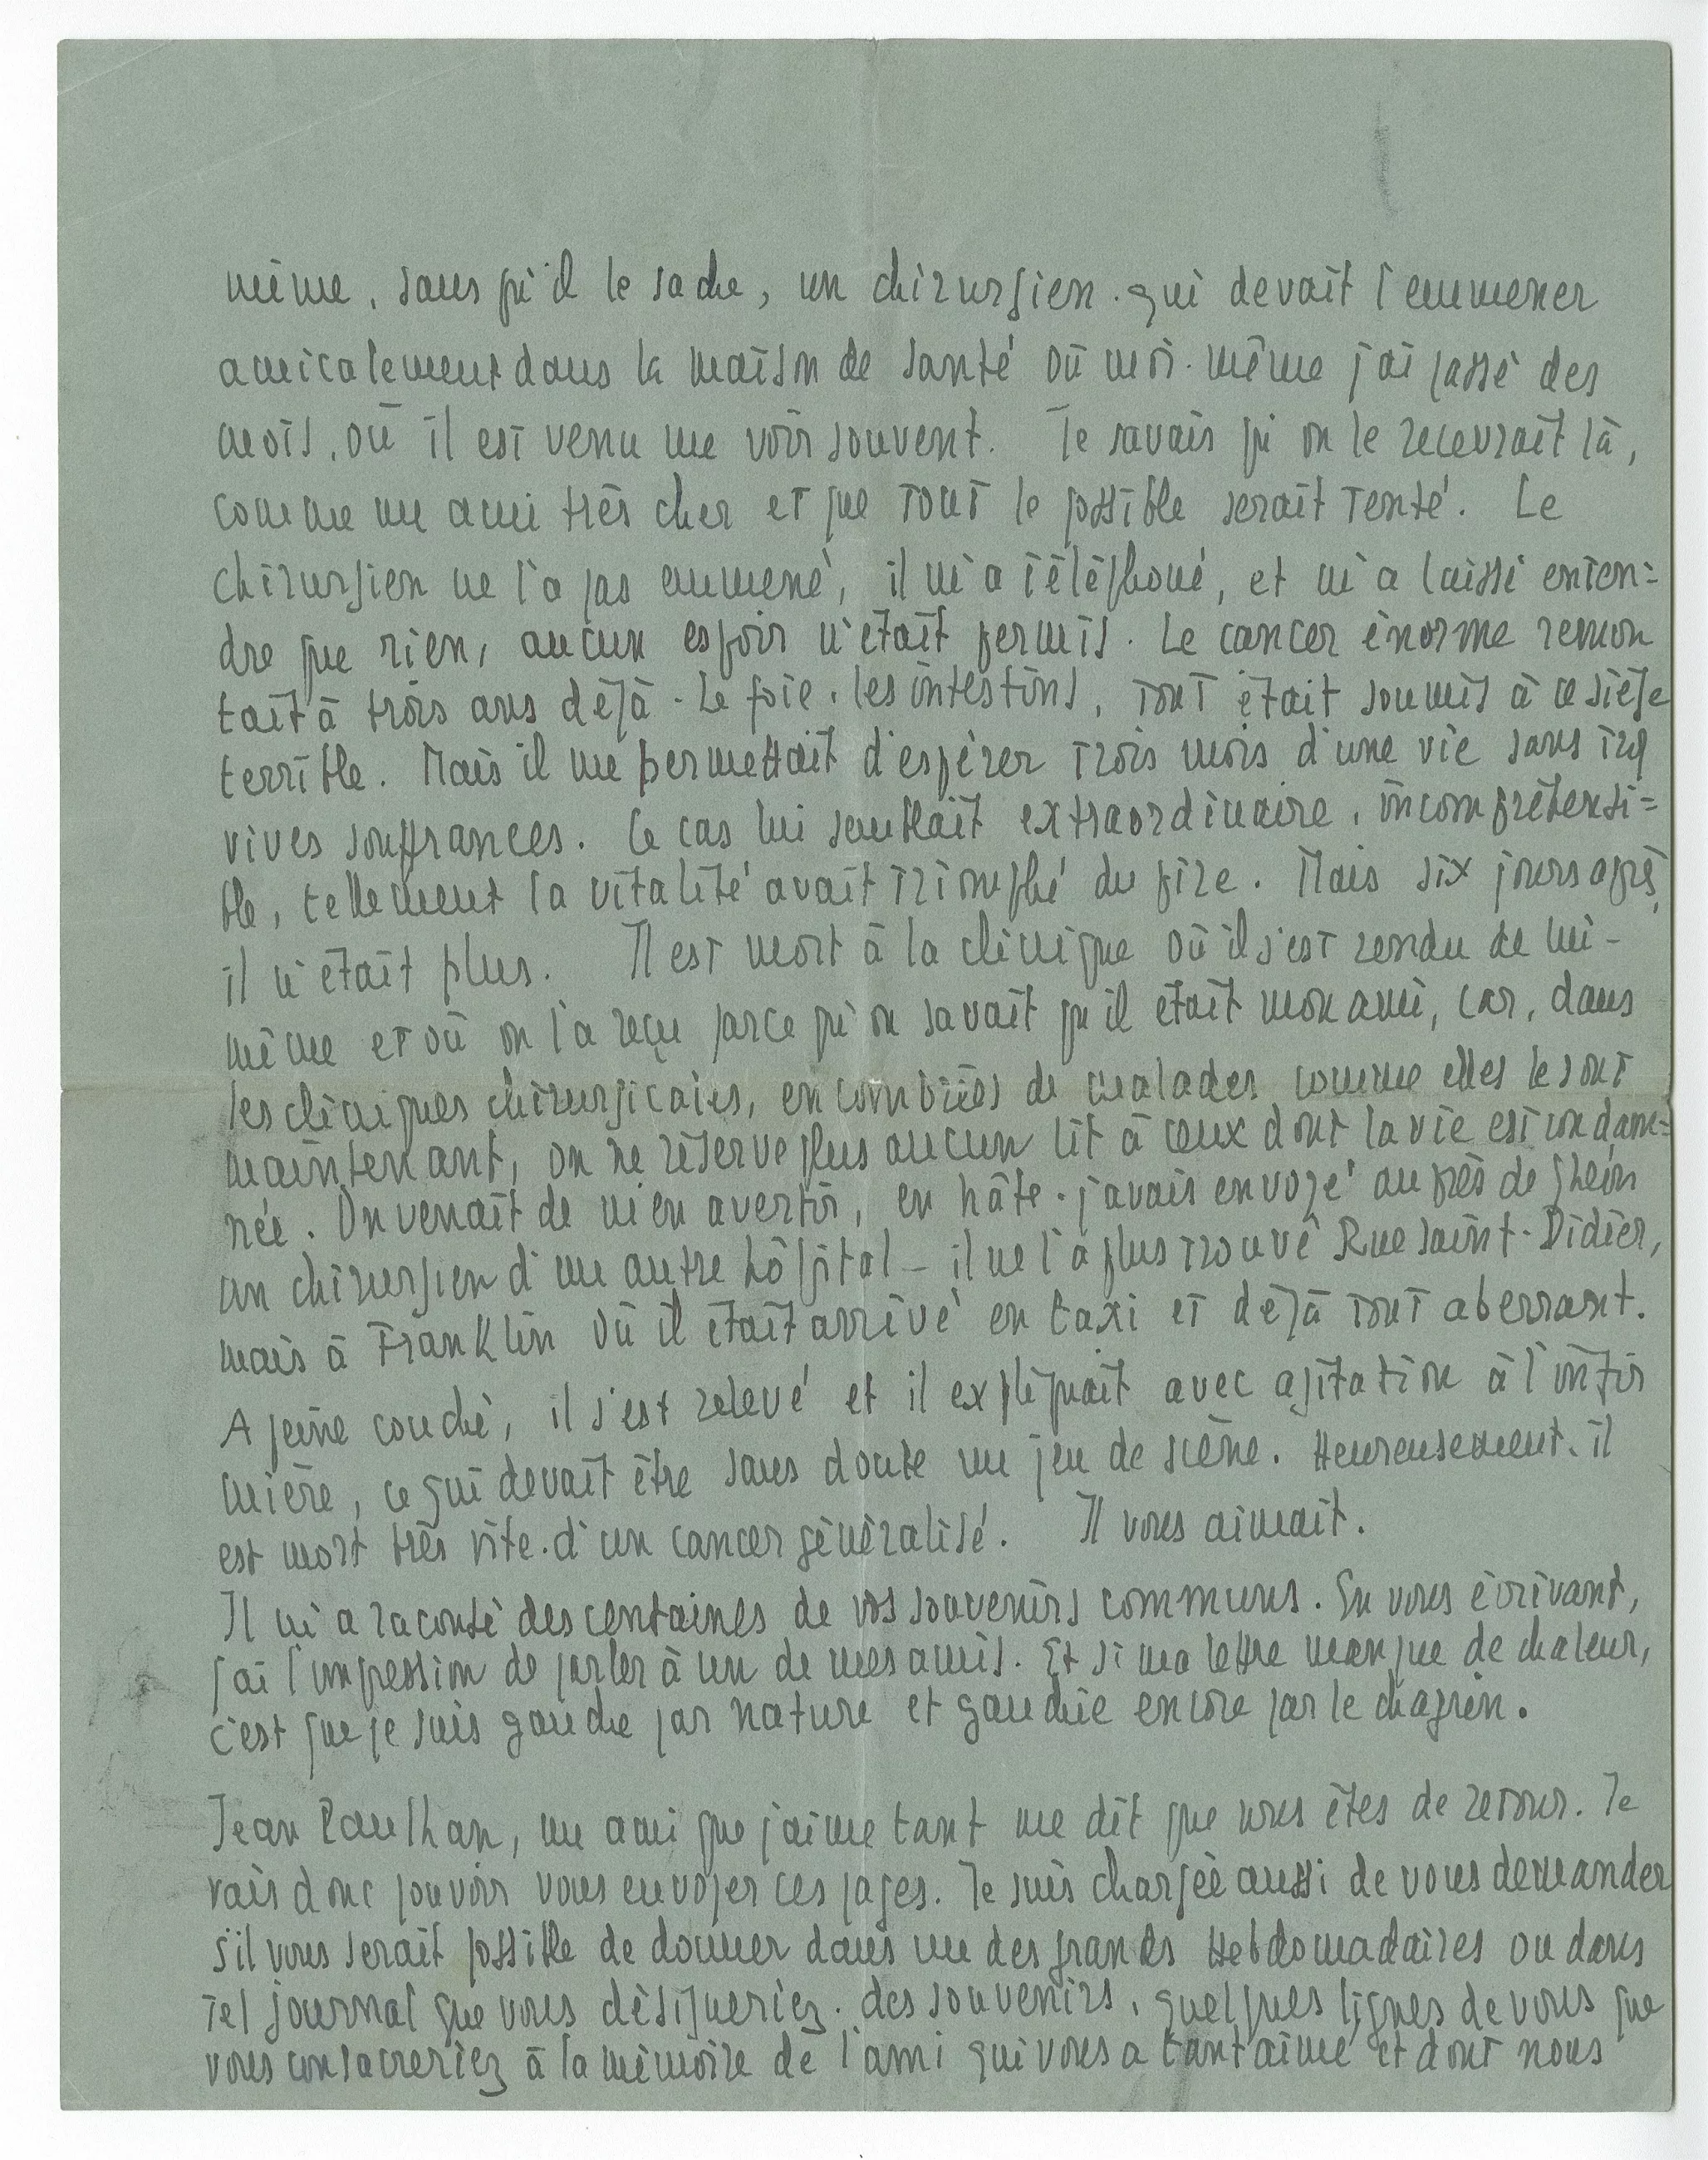 même, sans qu'il le sache, un chirurgien. qui devait l'emmener
amicalement dans la maison de santé où moi-même j'ai passé des
mois, où il est venu me voir souvent. Je savais qu'on le recevrait là,
comme un ami très cher et que tout le possible serait tenté. Le
chirurgien ne l'a pas emmené, il m'a téléphoné, et m'a laissé enten=
dre que rien, aucun espoir n'était permis. Le cancer énorme remon
tait à trois ans déjà. Le foie, les intestins, tout était soumis à ce siège
terrible. Mais il me permettait d'espérer trois mois d'une vie sans trop
vives souffrances. Ce cas lui semblait extraordinaire, incompréhensi=
ble, tellement la vitalité avait triomphé du pire. Mais six jours après,
il n'était plus. Il est mort à la clinique où il s'est rendu de lui-
même et où on l'a reçu parce qu'on savait qu'il était mon ami, car, dans
les cliniques chirurgicales, encombrées de malades comme elles le sont
maintenant, on ne réserve plus aucun lit à ceux dont la vie est condam=
née. On venait de m'en avertir, en hâte. j'avais envoyé auprès de Ghéon
un chirurgien d'un autre hôpital - il ne l'a plus trouvé Rue Saint-Didier,
mais à Franklin où il était arrivé en taxi et déjà tout aberrant.
A peine couché, il s'est relevé et il expliquait avec agitation à l'infir
mière, ce qui devait être sans doute un jeu de scène. Heureusement. il
est mort très vite. d'un cancer généralisé. Il vous aimait.
Il m'a raconté des centaines de vos souvenirs communs. En vous écrivant,
j'ai l'impression de parler à un de mes amis. Et si ma lettre manque de chaleur,
c'est que je suis gauche par nature et gauchie encore par le chagrin.
Jean Paulhan, un ami que j'aime tant me dit que vous êtes de retour. Je
vais donc pouvoir vous envoyer ces pages. Je suis chargée aussi de vous demander
s'il vous serait possible de donner dans un des grands Hebdomadaires ou dans
tel journal que vous désigneriez. des souvenirs, quelques lignes de vous que
vous consacreriez à la mémoire de l'ami qui vous a tant aimé et dont nous